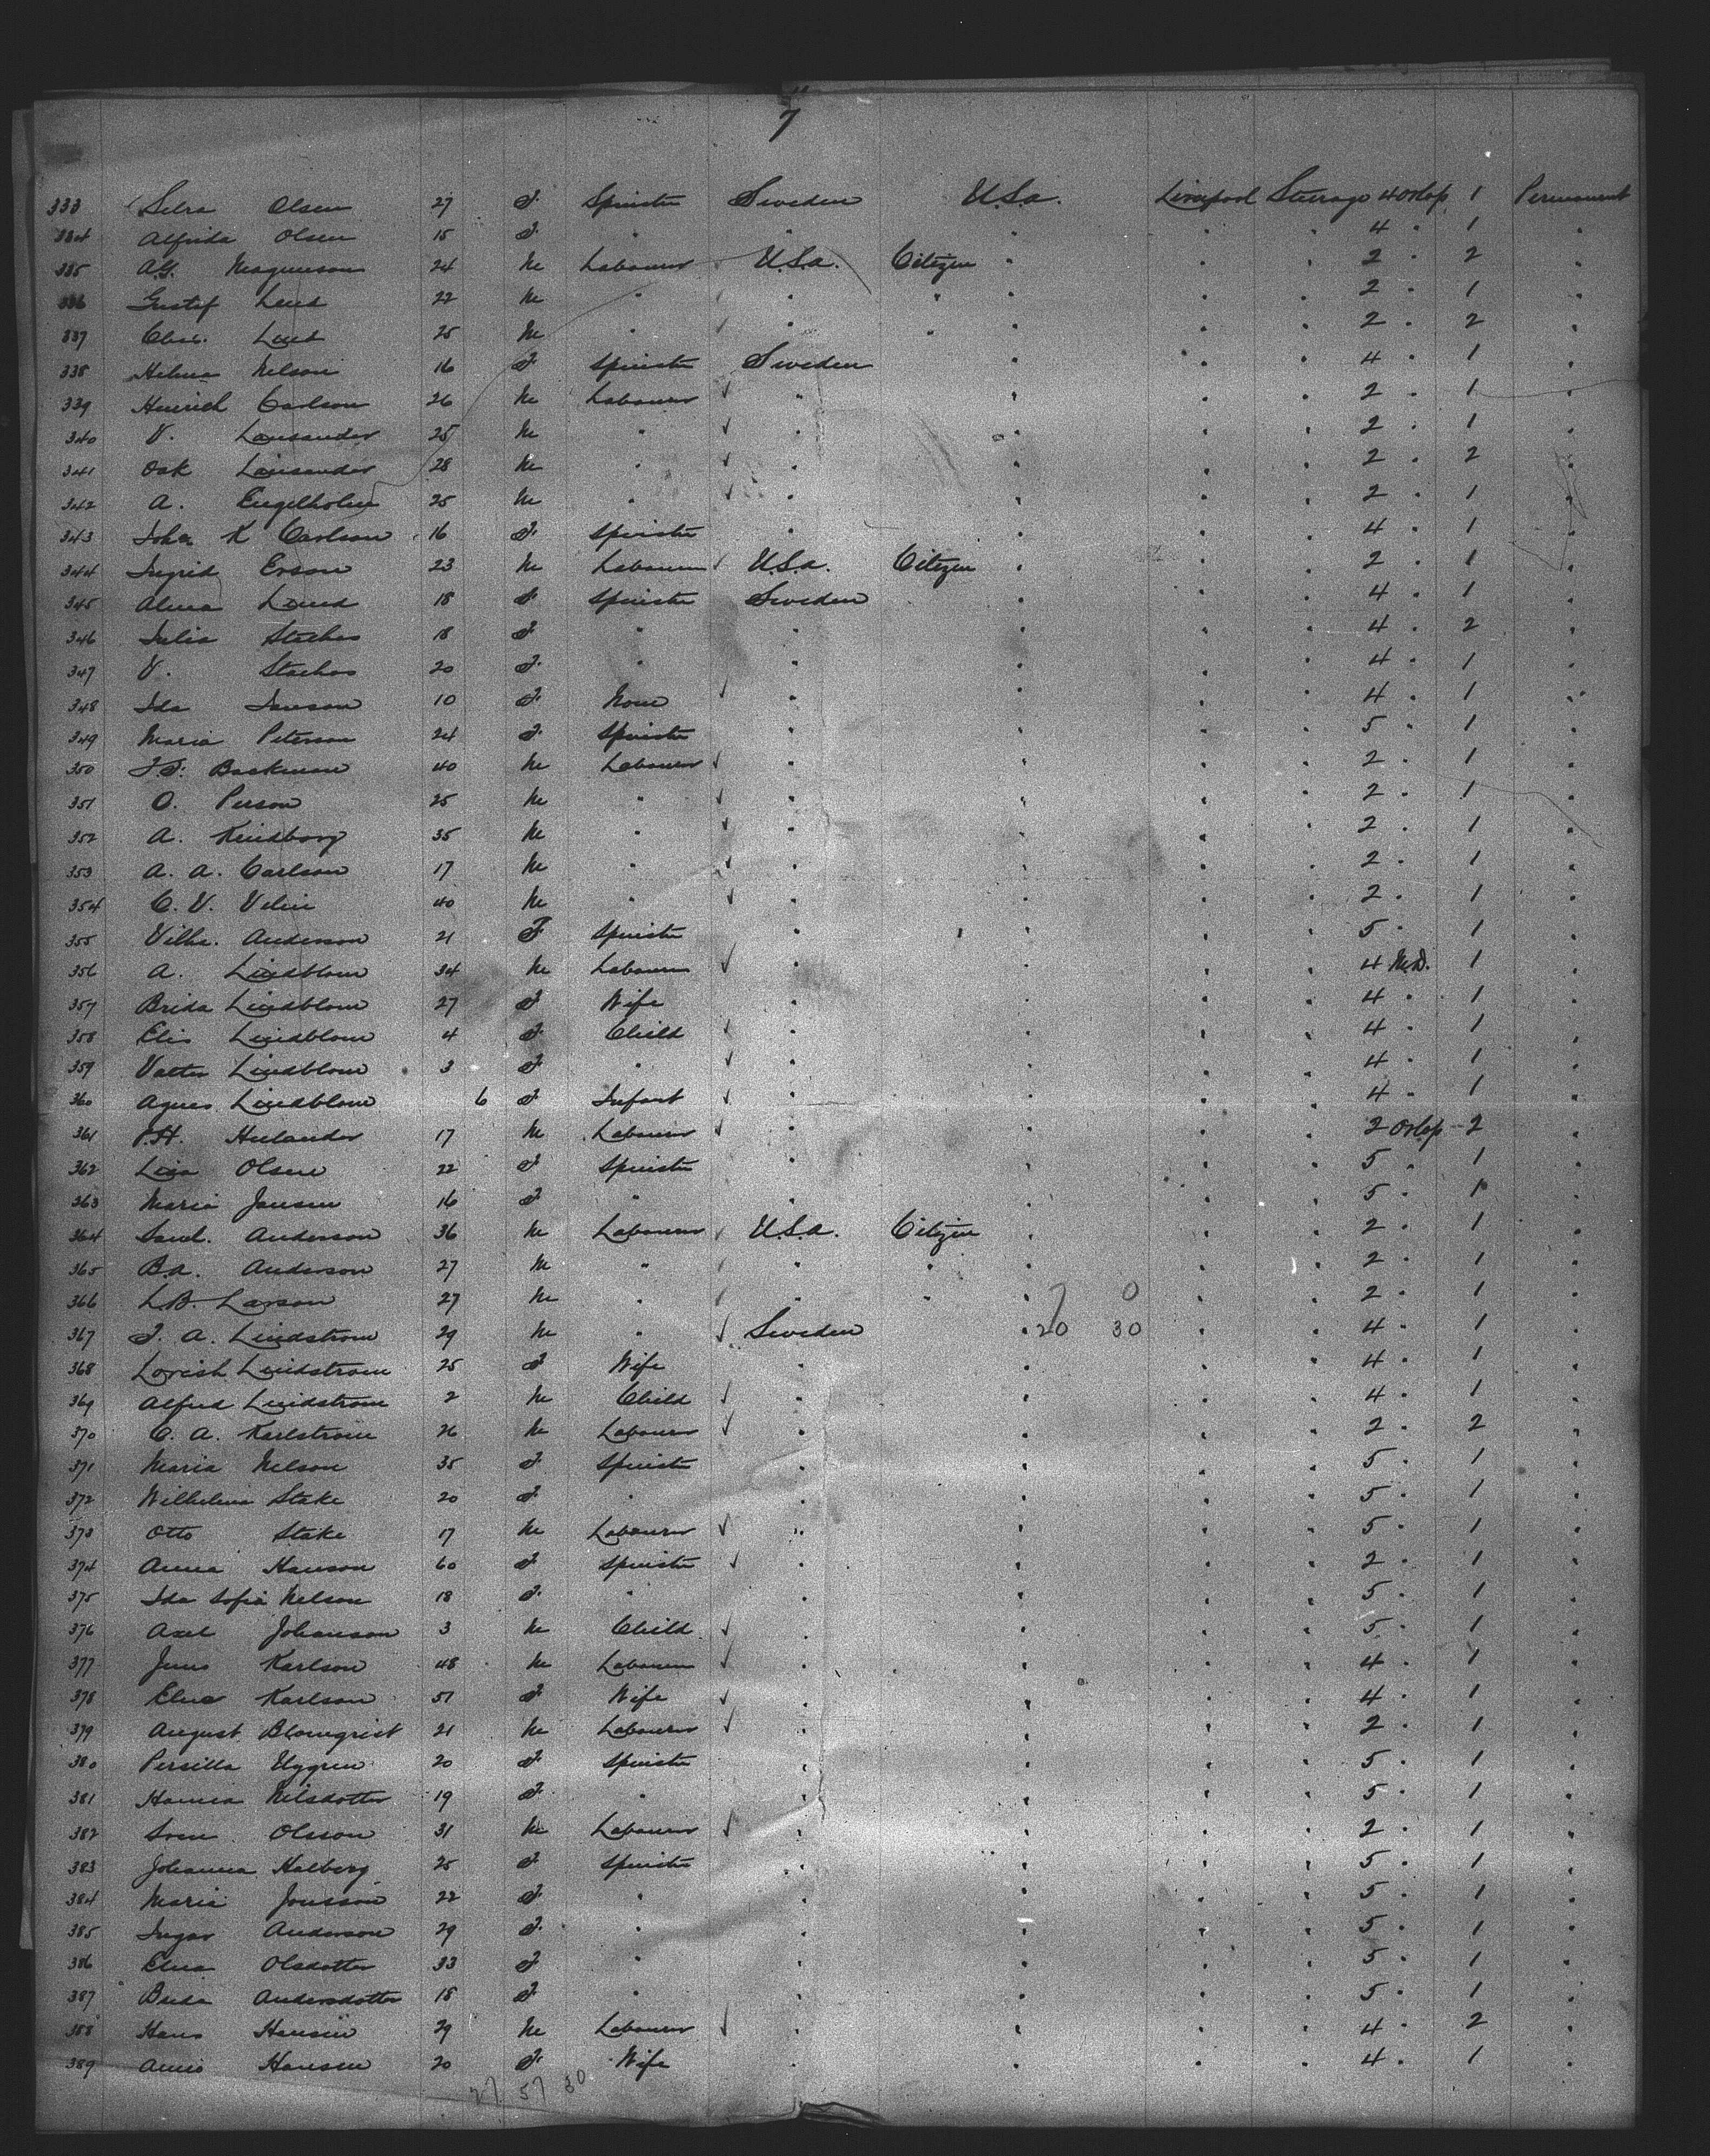 7
333 Selra Olsen 27 F. Spinster Sweden U.S.a. Liverpool Steerage 4 Orlop 1 Permanent
334 Alfrida Olsen 15 F. " " " " " 4 " 1 "
335 A.G. Magnuson 24 M Labourer U.S.a. Citizen " " " 2 " 2 "
336 Gustif Lind 22 M " " " " " " 2 " 1 "
337 Chr. Lind 25 M " " " " " " 2 " 2 "
338 Hilma Nelson 16 F. Spinster Sweden " " " 4 " 1 "
339 Heinrich Carlson 26 M Labourer " " " " 2 " 1 "
340 V. 25 M " " " " " 2 " 1 "
341 Osk 28 M " " " " " 2 " 2 "
342 A. Engelholm 25 M " " " " " 2 " 1 "
343 Joha K Carlson 16 F. Spinster " " " " 4 " 1 "
344 Ingrid Erson 23 M Labourer U.S.a. Citizen " " " 2 " 1 "
345 Alma Lund 18 F. Spinster Sweden " " " 4 " 1 "
346 Julia 18 F. " " " " " 4 " 2 "
347 V. 20 F. " " " " " 4 " 1 "
348 Ida Janson 10 F. None " " " " 4 " 1 "
349 Maria Peterson 24 F. Spinster " " " " 5 " 1 "
350 J.F. Backman 40 M Labourer " " " " 2 " 1 "
351 O. Person 25 M " " " " " 2 " 1 "
352 A. Kindborg 35 M " " " " " 2 " 1 "
353 A. A. Carlson 17 M " " " " " 2 " 1 "
354 C. V. Velin 40 M " " " " " 2 " 1 "
355 Vilhe. Anderson 21 F Spinster " " " " 5 " 1 "
356 A. Lindblom 34 M Labourer " " " " 4 M.D. 1 "
357 Brida Lindblom 27 F Wife " " " " 4 " 1 "
358 Elis Lindblom 4 F. Child " " " " 4 " 1 "
359 Valter Lindblom 3 F. " " " " " 4 " 1 "
360 Agnes Lindblom 6 F Infant " " " " 4 " 1 "
361 P.H. Hulander 17 M Labourer " " " " 2 Orlop 2 "
362 Lisa Olsen 22 F Spinster " " " " 5 " 1 "
363 Maria Jansen 16 F. " " " " " 5 " 1 "
364 Saml. Anderson 36 M Labourer U.S.a. Citizen " " " 2 " 1 "
365 B.A. Anderson 27 M " " " " " " 2 " 1 "
366 L.B. Larson 27 M " " " " " " 2 " 1 "
7 0
367 F. A. Lindstrom 29 M " Sweden " 20 30 " " 4 " 1 "
368 Lovish Lindstrom 25 F Wife " " " " 4 " 1 "
369 Alfred Lindstrom 2 M Child " " " " 4 " 1 "
370 C. A. Karlstrom 26 M Labourer " " " " 2 " 2 "
371 Maria Nelson 35 F. Spinster " " " " 5 " 1 "
372 Wilhelmi Stake 20 F. " " " " " 5 " 1 "
373 Otto Stake 17 M Labourer " " " " 5 " 1 "
374 Anna Hanson 60 F. Spinster " " " " 2 " 1 "
375 Ida Sofia Nelson 18 F. " " " " " 5 " 1 "
376 Axel Johanson 3 M Child " " " " 5 " 1 "
377 Jens Karlson 48 M Labourer " " " " 4 " 1 "
378 Elna Karlson 51 F. Wife " " " " 4 " 1 "
379 August Blomgrist 21 M Labourer " " " " 2 " 1 "
380 Persilla Uggren 20 F. Spinster " " " " 5 " 1 "
381 Hanna Nilsdotter 19 F. " " " " " 5 " 1 "
382 Sven Olsson 31 M Labourer " " " " 2 " 1 "
383 Johanna Halberg 25 F Spinster " " " " 5 " 1 "
384 Maria Jonsson 22 F. " " " " " 5 " 1 "
385 Ingar Anderson 29 F. " " " " " 5 " 1 "
386 Elna Olsdotter 33 F " " " " " 5 " 1 "
387 Andersdotter 18 F. " " " " " 5 " 1 "
388 Hans Hansen 29 M Labourer " " " " 4 " 2 "
389 Annie Hansen 20 F. Wife " " " " 4 " 1 "
27 57 30